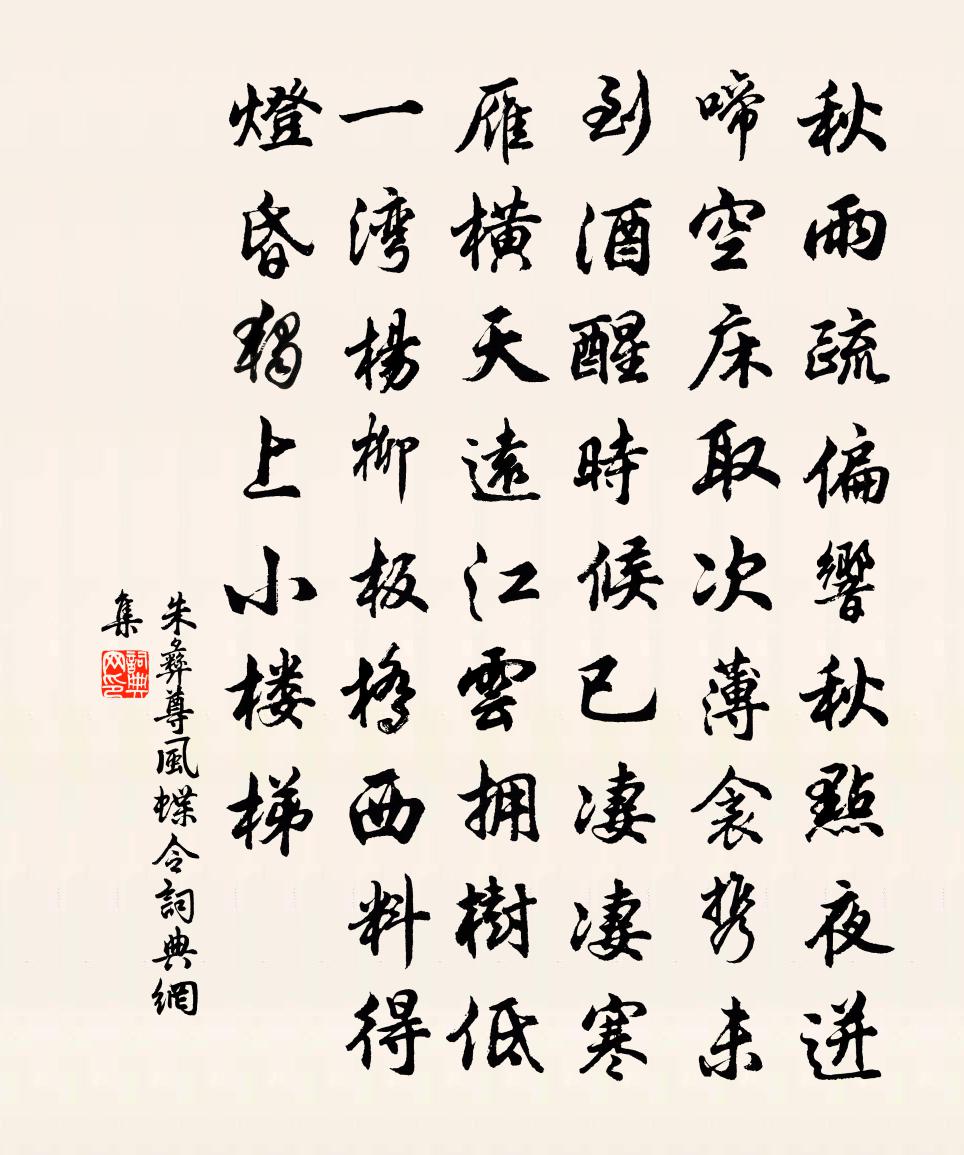 秋雨疏偏響秋點夜迸
啼空床取次薄衾携未
到酒醒時候已凄凄寒
雁橫天遠江雲拥樹低
一湾楊柳板橋西料得
燈昏獨上小楼梯
朱彝尊風蝶令詞典網
集
詞典
网印